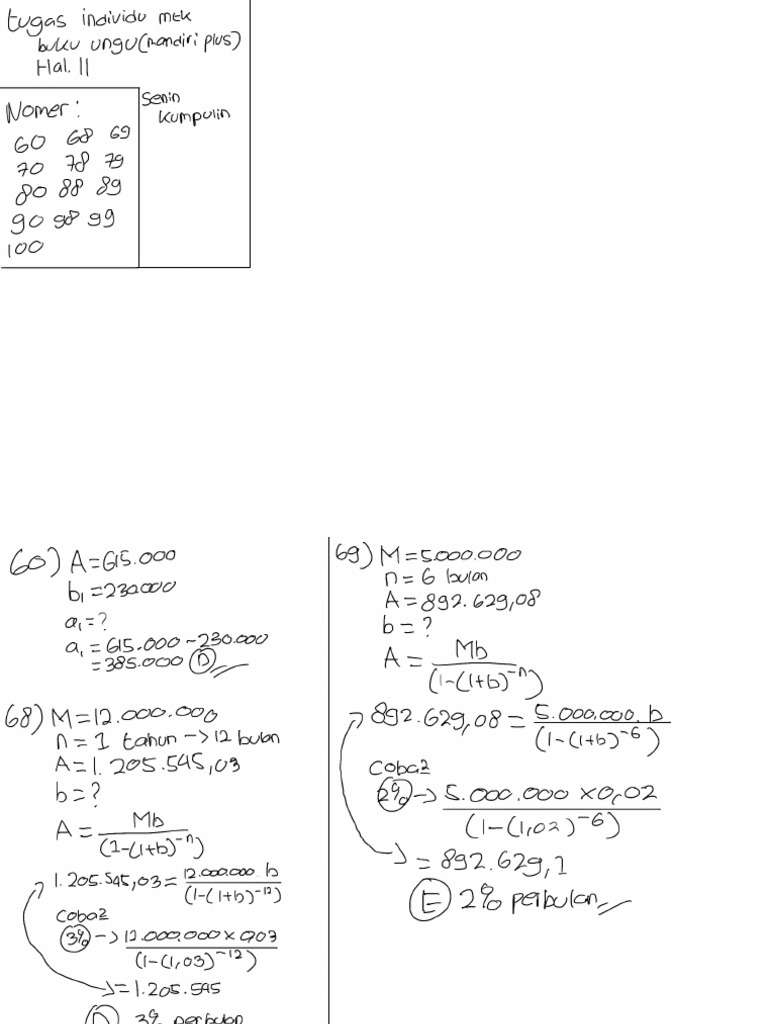 tugas individu mtk
buku ungu (mandiri plus)
Hal. 11
Nomer:
60 68 69
70 78 79
80 88 89
90 98 99
100
Senin
kumpulin
60) A = 615.000
b₁ = 230.000
a₁ = ?
a₁ = 615.000 - 230.000
= 385.000 (D)
68) M = 12.000.000
n = 1 tahun → 12 bulan
A = 1.205.545,03
b = ?
A = Mb / (1-(1+b)⁻ⁿ)
1.205.545,03 = 12.000.000.b / (1-(1+b)⁻¹²)
coba2
3% → 12.000.000 x 0,03 / (1-(1,03)⁻¹²)
= 1.205.545
(D) 3% perbulan
69) M = 5.000.000
n = 6 bulan
A = 892.629,08
b = ?
A = Mb / (1-(1+b)⁻ⁿ)
892.629,08 = 5.000.000.b / (1-(1+b)⁻⁶)
coba2
2% → 5.000.000 x 0,02 / (1-(1,02)⁻⁶)
= 892.629,1
(E) 2% perbulan